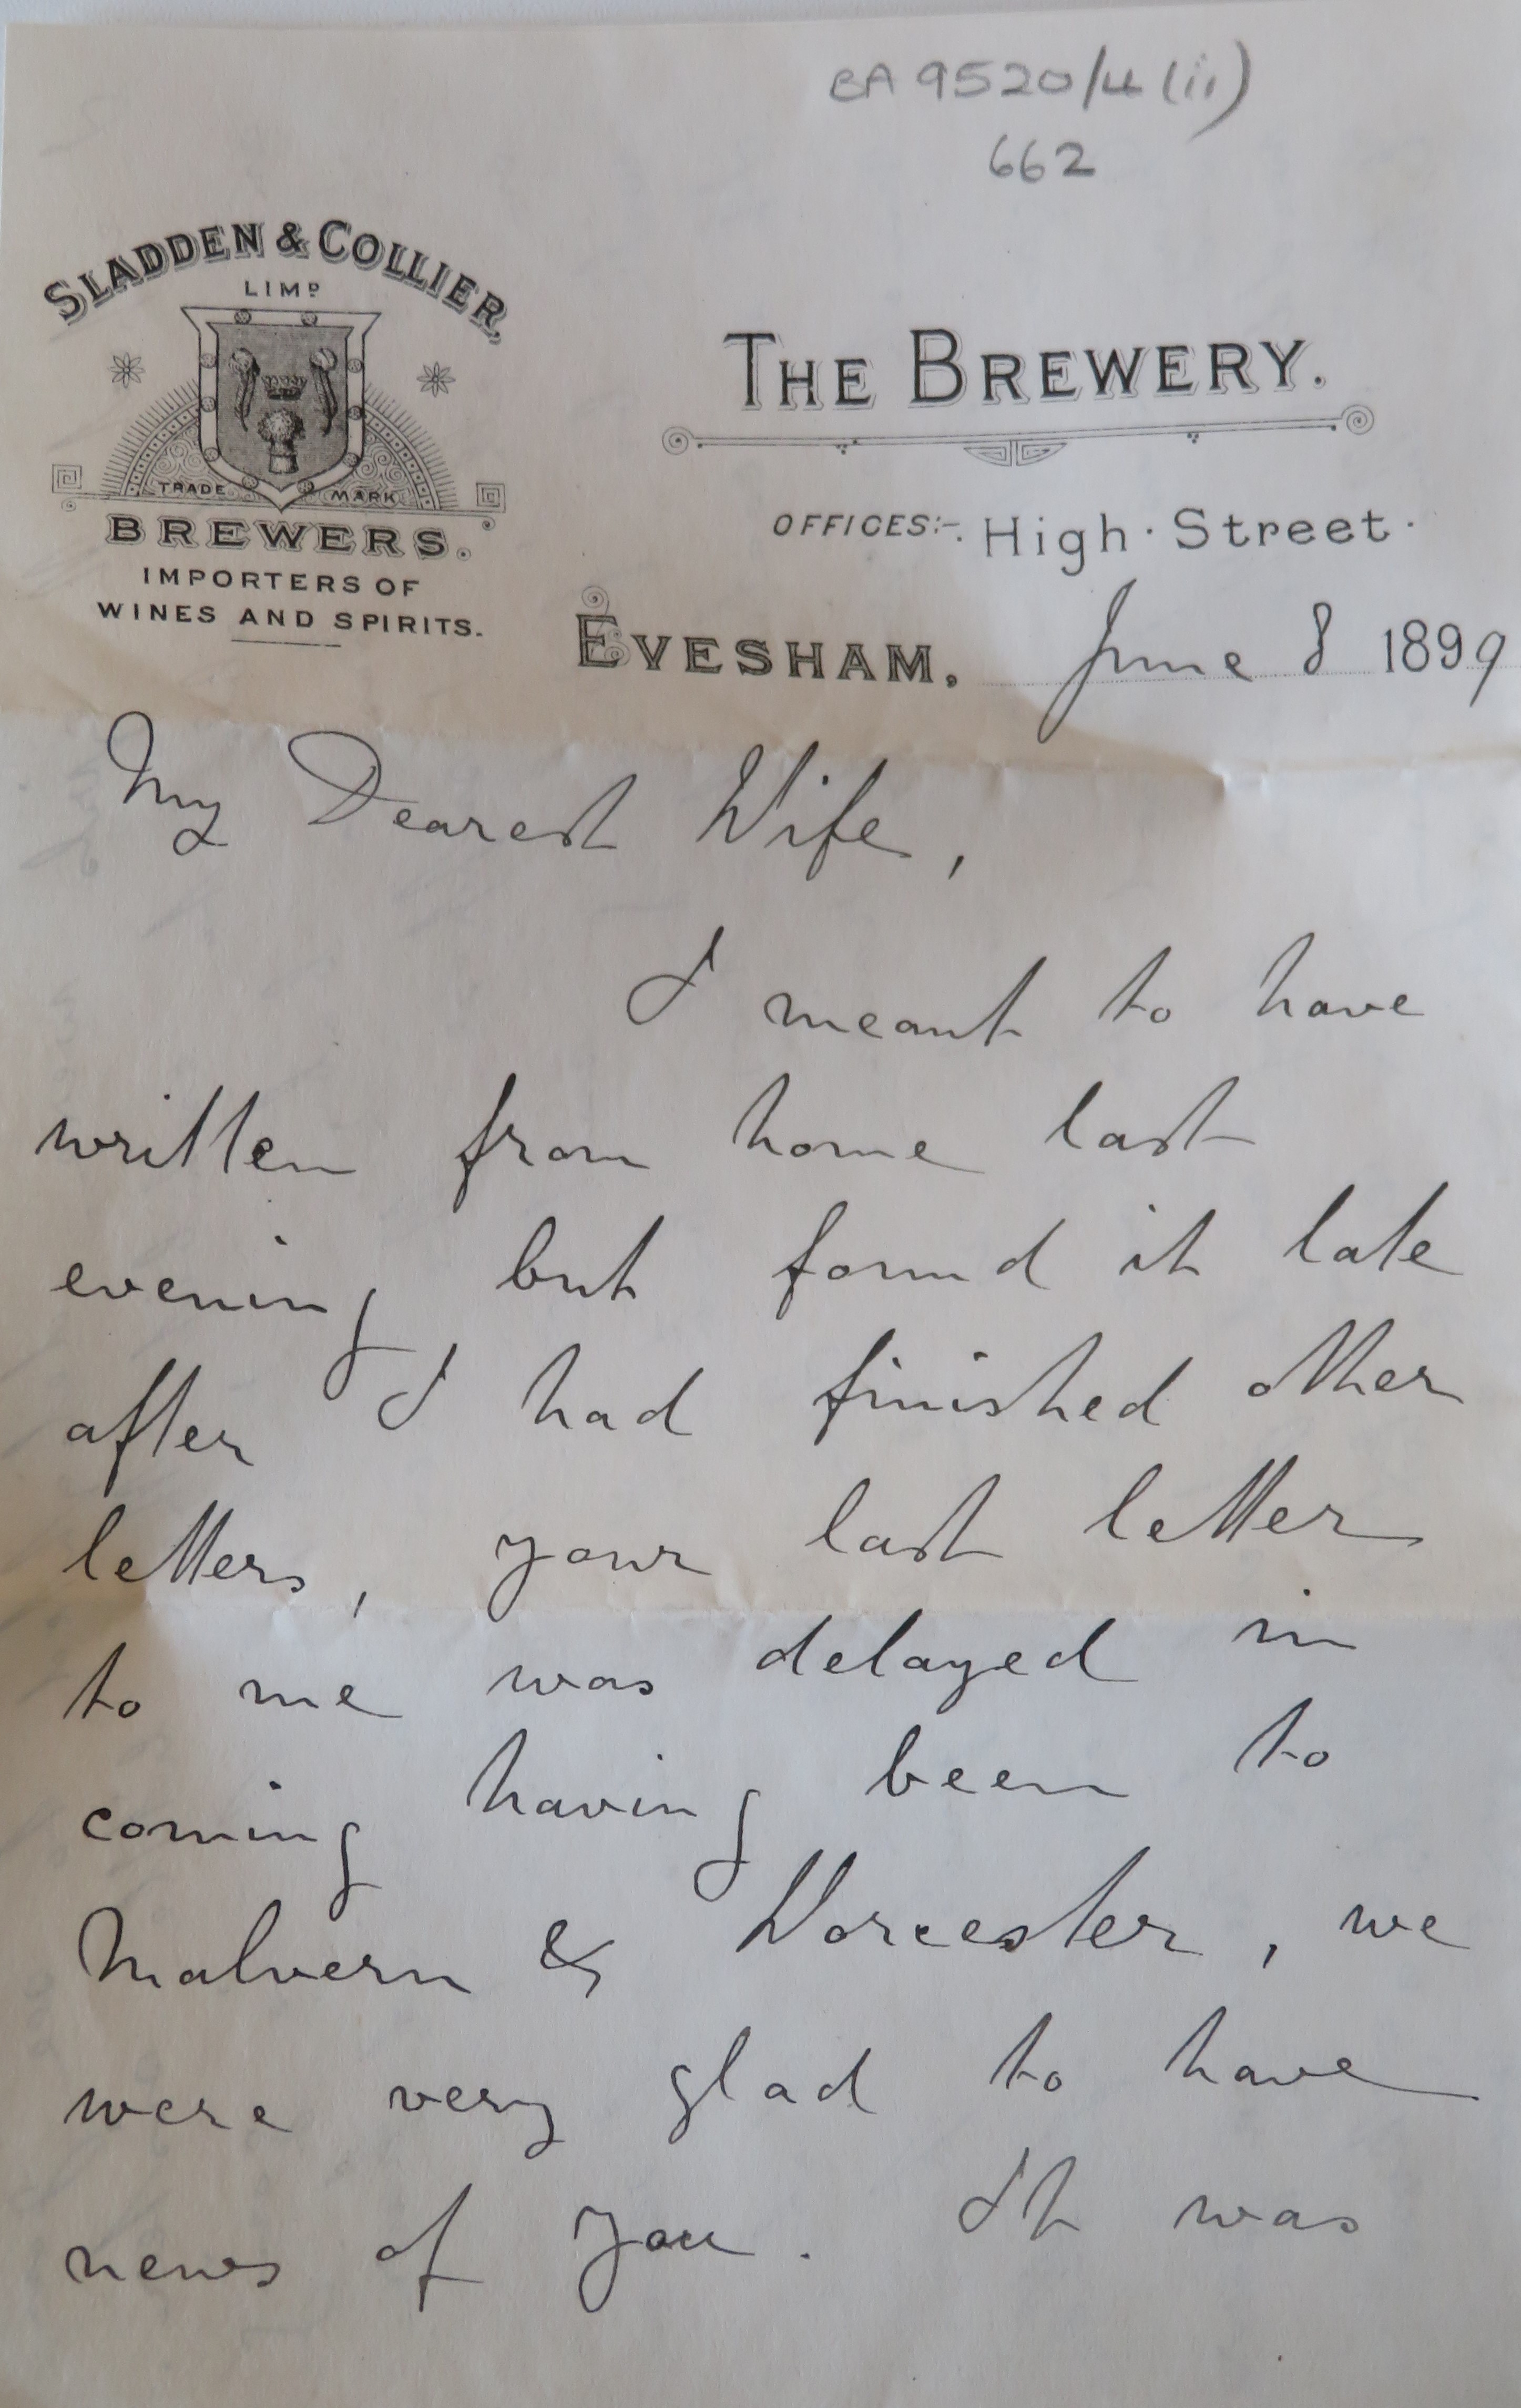 BA 9520/4 (ii)
662
SLADDEN & COLLIER,
LIMD
TRADE MARK
BREWERS.
IMPORTERS OF
WINES AND SPIRITS.
THE BREWERY.
OFFICES:- High Street.
EVESHAM. June 8 1899
My Dearest Wife,
I meant to have
written from home last
evening but found it late
after I had finished other
letters, your last letter
to me was delayed in
coming having been to
Malvern & Worcester, we
were very glad to have
news of you. It was